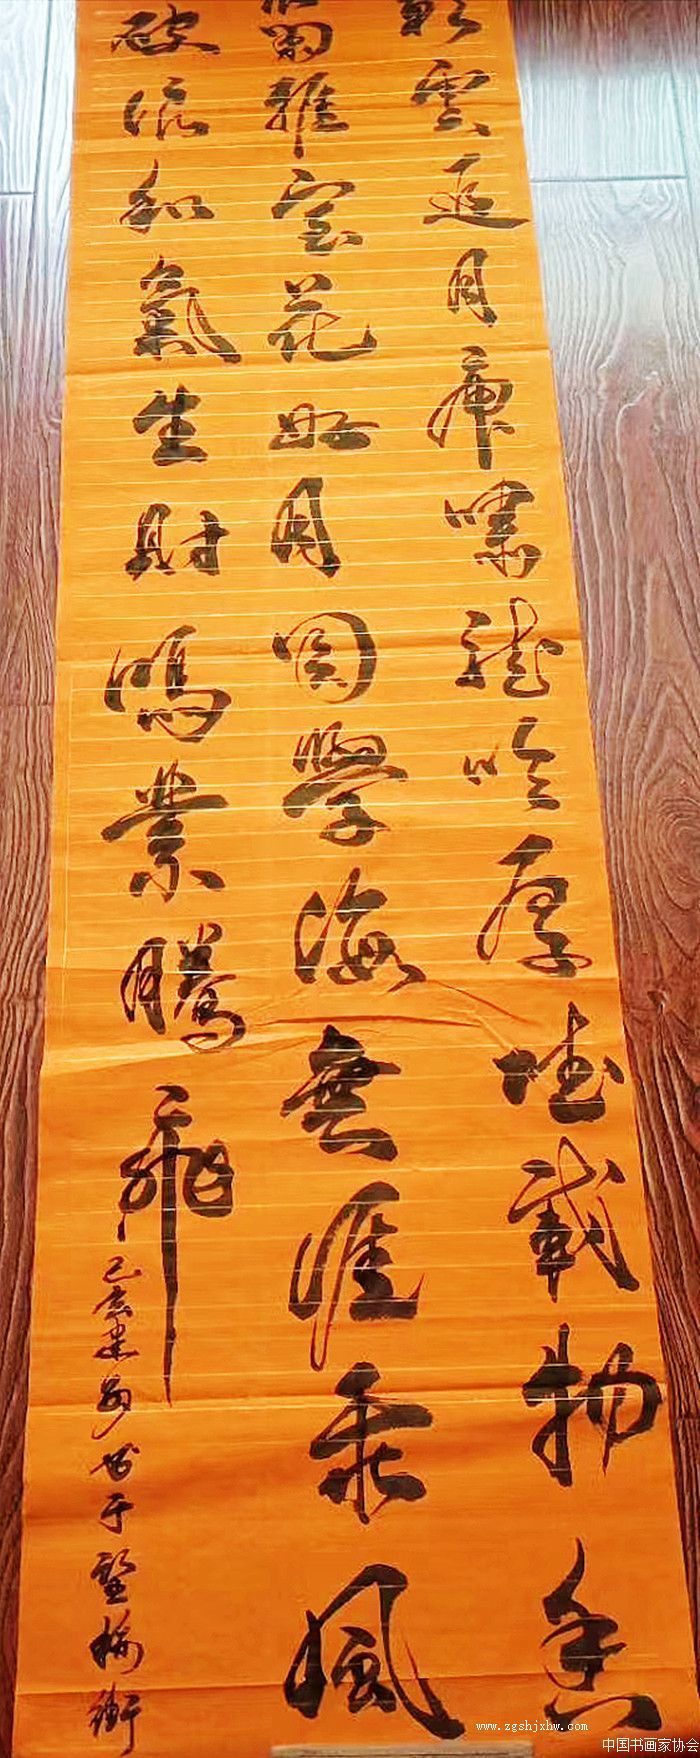 彩雲追月虎嘯龍吟厚德載物香
雅室花好月圓學海無涯乘風
破浪和氣生財鴻業騰飛
己亥書于
www.zgshjxhw.com
中国书画家协会